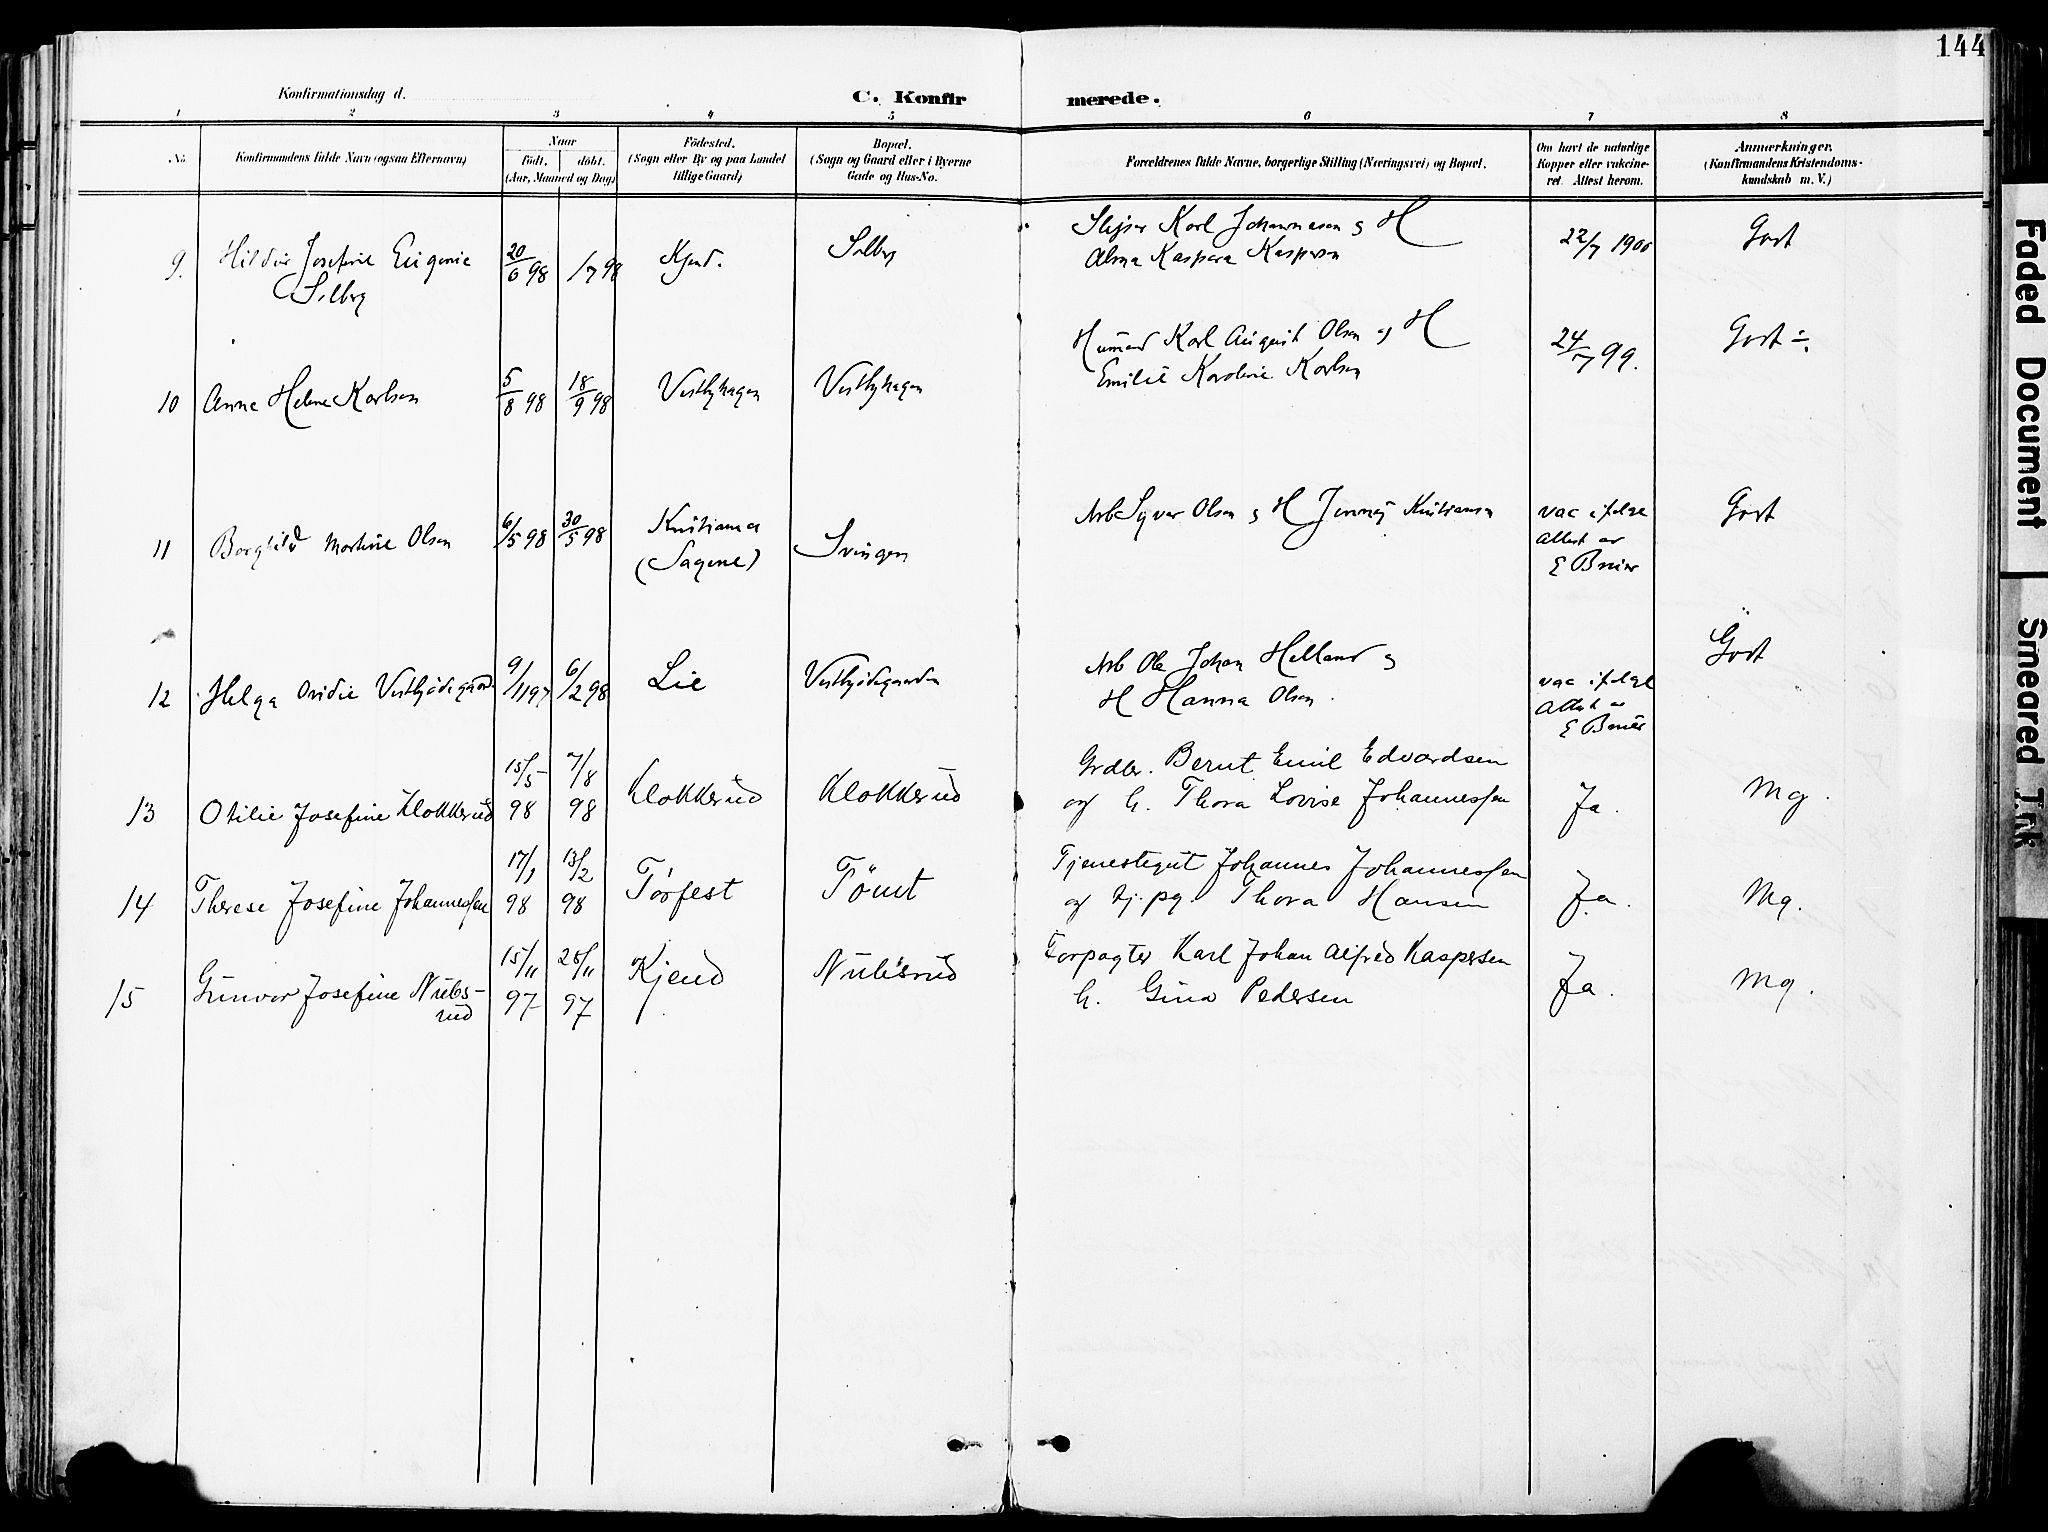 144
Konfirmationsdag d.
C. Konfir merede.
1 2 3 4 5 6 7 8
No.
Konfirmandens fulde Navn (ogsaa Efternavn)
Naar
født. døbt.
(Aar, Maaned og Dag)
Födested.
(Sogn eller By og paa Landet
tillige Gaard)
Bopæl.
(Sogn og Gaard eller i Byerne
Gade og Hus-No.
Forældrenes fulde Navne, borgerlige Stilling (Næringsvei) og Bopæl.
Om havt de naturlige
Kopper eller vakcine-
ret. Attest herom.
Anmærkninger.
(Konfirmandens Kristendoms-
kundskab m. V.)
9. Josefine Eugenie 20/6 98 1/7 98 Kjend. Solberg Karl Johannesen og H 22/7 1900 Godt
Solberg
Alma Kaspara Kaspersen
10 Anna Helene Karlsen 5/8 98 18/9 98 Vestbyhagen Vestbyhagen
Husmd Karl August Olsen og H 24/7 99. Godt ÷.
Emilie Karoline Karlsen
11 Borghild Martine Olsen 6/5 98 30/5 98 Kristiania
(Sagene)
Svingen
Arb Syver Olsen og H Jenny Kristiansen
vac ifølge
Attest av
E
Godt
12 Helga Ovidie Vestbødegaard 9/11 97 6/2 98 Lie Vestbødegaarden
Arb Ole Johan Helland og
H Hanna Olsen.
vac ifølge
Attest av
E
Godt
13 Otilie Josefine Klokkerud 15/5 98 7/8 98 Klokkerud Klokkerud
Grdbr. Bernt Emil Edvardsen
og h. Thora Lovise Johannessen
Ja. Mg.
14 Therese Josefine Johannessen 17/1 98 13/2 98 Torfest Tömt
Tjenestegut Johannes Johannessen
og tj.pg. Thora Hansen
Ja. Mg.
15 Gunvor Josefine Nubs-
rud
15/11 97 28/11 97 Kjend Nubsrud
Forpagter Karl Johan Alfred Kaspersen
h. Gina Pedersen
Ja. Mg.
Faded Document
Smeared Ink